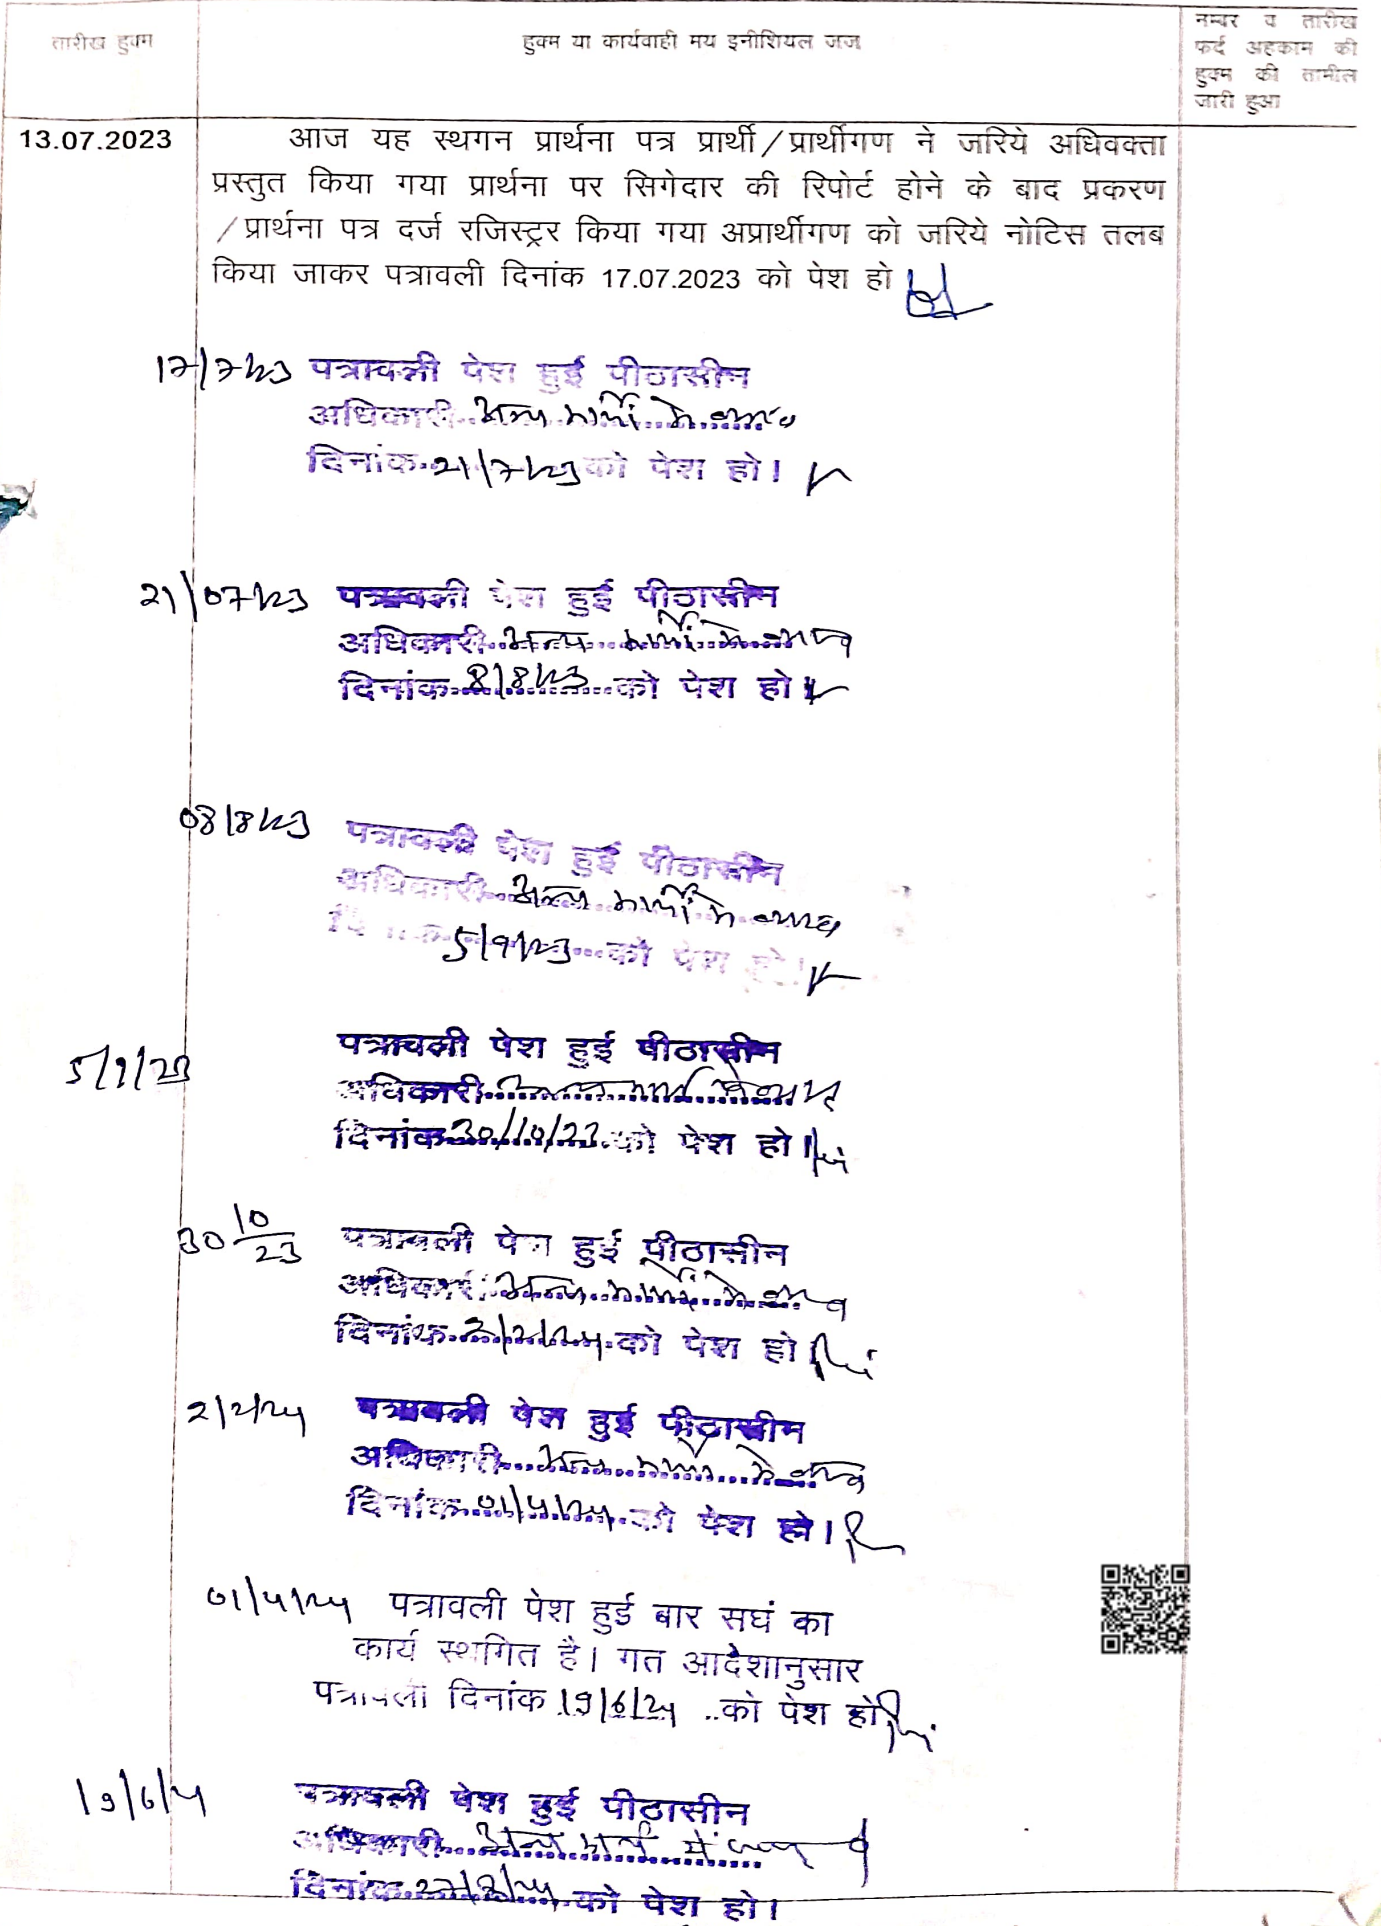 तारीख हुक्म
हुक्म या कार्यवाही मय इनीशियल जज
नम्बर व तारीख
फर्द अहकाम की
हुक्म की तामील
जारी हुआ
13.07.2023
आज यह स्थगन प्रार्थना पत्र प्रार्थी/प्रार्थीगण ने जरिये अधिवक्ता
प्रस्तुत किया गया प्रार्थना पर सिगेदार की रिपोर्ट होने के बाद प्रकरण
/प्रार्थना पत्र दर्ज रजिस्ट्रर किया गया अप्रार्थीगण को जरिये नोटिस तलब
किया जाकर पत्रावली दिनांक 17.07.2023 को पेश हो
17/7/23 पत्रावली पेश हुई पीठासीन
अधिकारी अन्य कार्यो मे व्यस्त
दिनांक 21/7/23 को पेश हो।
21/07/23 पत्रावली पेश हुई पीठासीन
अधिकारी अन्य कार्यो मे व्यस्त
दिनांक 8/8/23 को पेश हो।
08/8/23 पत्रावली पेश हुई पीठासीन
अधिकारी अन्य कार्यो मे व्यस्त
5/9/23 को पेश हो।
5/9/23 पत्रावली पेश हुई पीठासीन
अधिकारी अन्य कार्य मे व्यस्त
दिनांक 30/10/23 को पेश हो।
30 10/23 पत्रावली पेश हुई पीठासीन
अधिकारी अन्य कार्यो मे व्यस्त
दिनांक 2/2/24 को पेश हो
2/2/24 पत्रावली पेश हुई पीठासीन
अधिकारी अन्य कार्यो मे व्यस्त
दिनांक 01/4/24 को पेश हो।
01/4/24 पत्रावली पेश हुई बार सघं का
कार्य स्थगित है। गत आदेशानुसार
पत्रावली दिनांक 19/6/24 ..को पेश हो
19/6/24 पत्रावली पेश हुई पीठासीन
अधिकारी अन्य कार्य में व्यस्त
दिनांक को पेश हो।